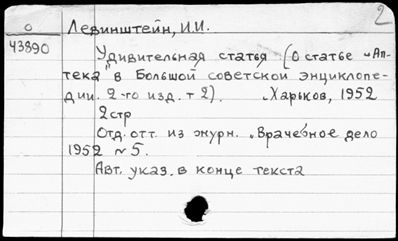 2
О Левинштейн, И.И.
43890
Удивительная статья (о статье „Ап-
тека" в Большой советской энциклопе-
дии. 2-го изд. т 2). Харьков, 1952
2стр
Отд. отт. из журн. „Врачебное дело
1952 № 5.
Авт. указ. в конце текста